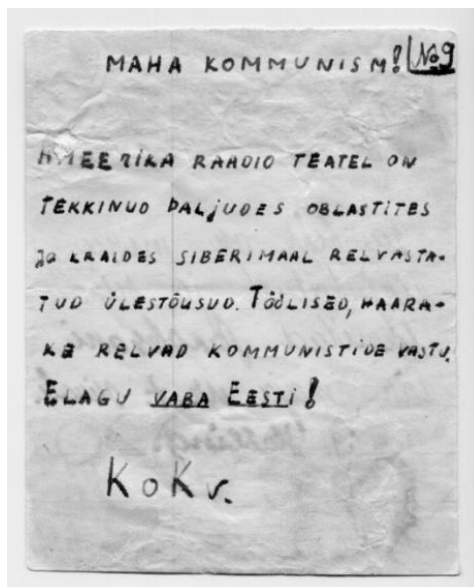 MAHA KOMMUNISM! No 9
AMEERIKA RAADIO TEATEL ON
TEKKINUD PALJUDES OBLASTITES
JA KRAIDES SIBERIMAAL RELVASTA-
TUD ÜLESTÕUSUD. TÖÖLISED, HAARA-
KE RELVAD KOMMUNISTIDE VASTU.
ELAGU VABA EESTI!
KoKv.